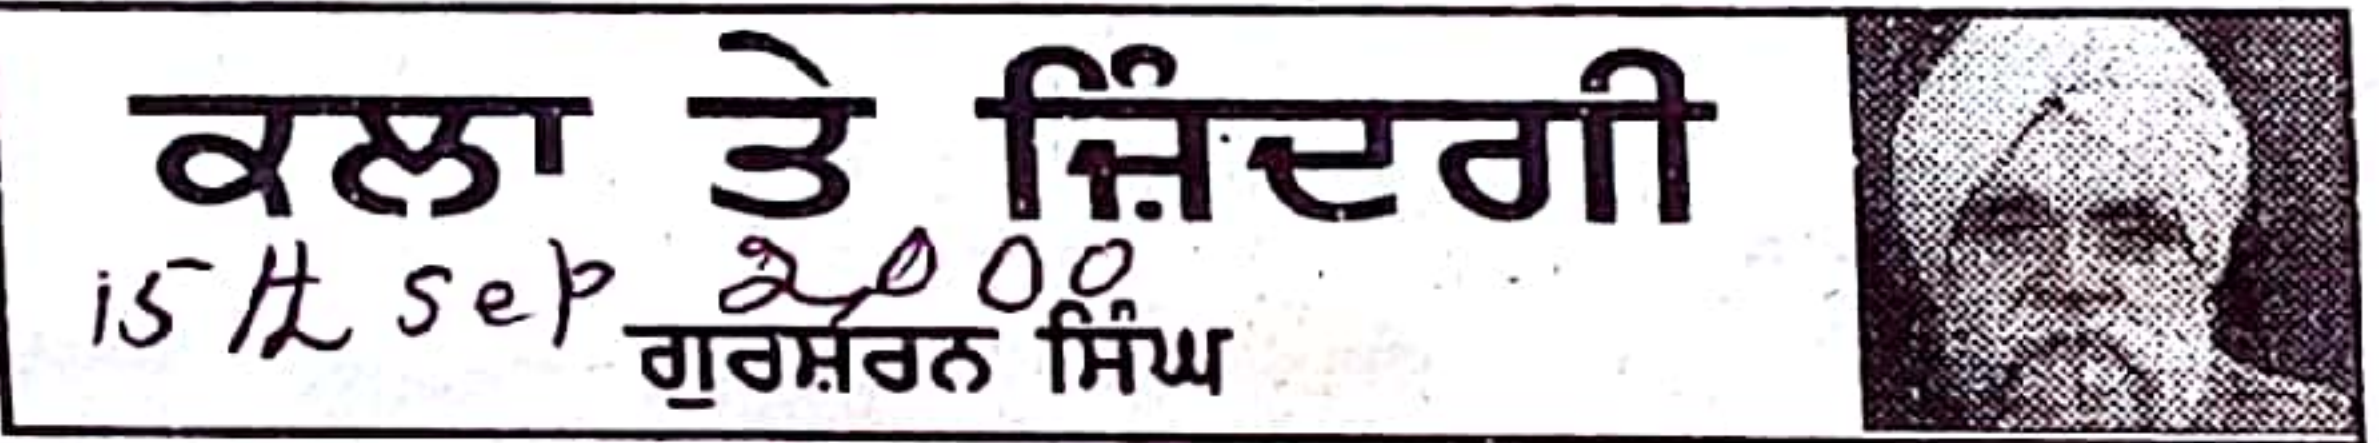 ਕਲਾ ਤੇ ਜ਼ਿੰਦਗੀ
15th Sep 2000
ਗੁਰਸ਼ਰਨ ਸਿੰਘ